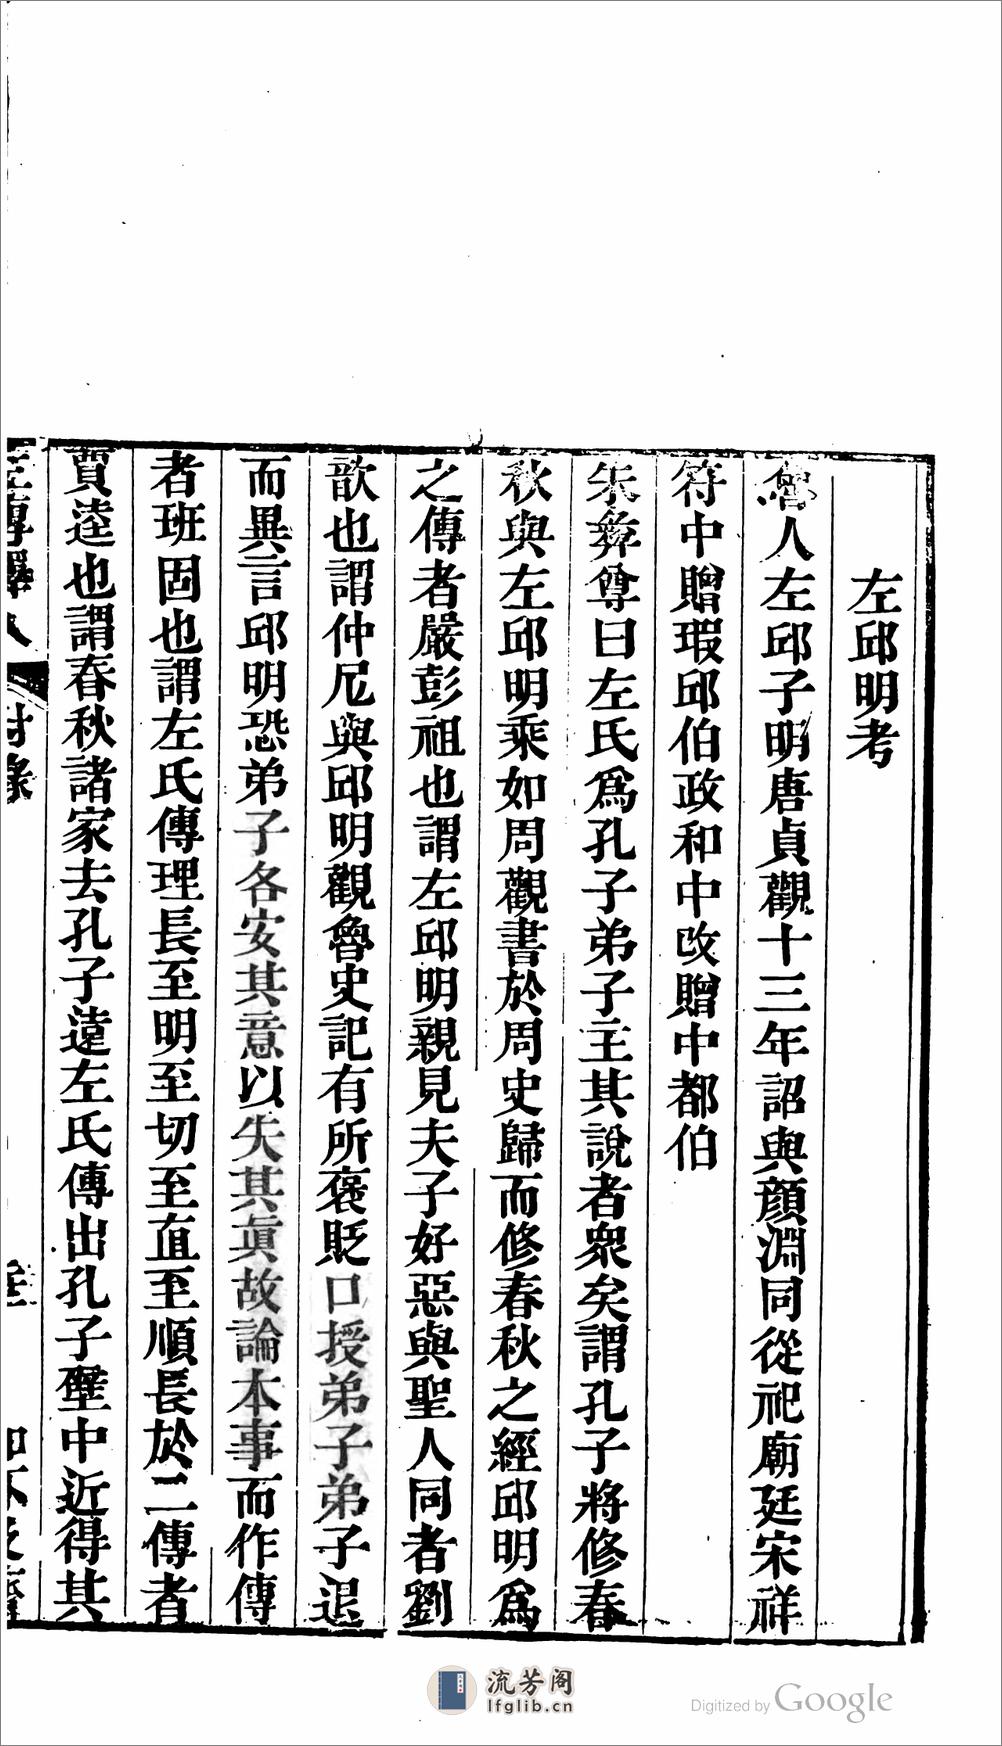 左邱明考
魯人左邱子明唐貞觀十三年詔與顔淵同從祀廟廷宋祥
符中贈瑕邱伯政和中改贈中都伯
朱彜尊曰左氏爲孔子弟子主其說者衆矣謂孔子將修春
秋與左邱明乘如周觀書於周史歸而修春秋之經邱明爲
之傳者嚴彭祖也謂左邱明親見夫子好惡與聖人同者劉
歆也謂仲尼與邱明觀魯史記有所褒貶口授弟子弟子退
而異言邱明恐弟子各安其意以失其眞故論本事而作傳
者班固也謂左氏傳理長至明至切至直至順長於二傳者
賈逵也謂春秋諸家去孔子遠左氏傳出孔子壁中近得其
左傳釋人
附錄
流芳阁
lfglib.cn
Digitized by Google